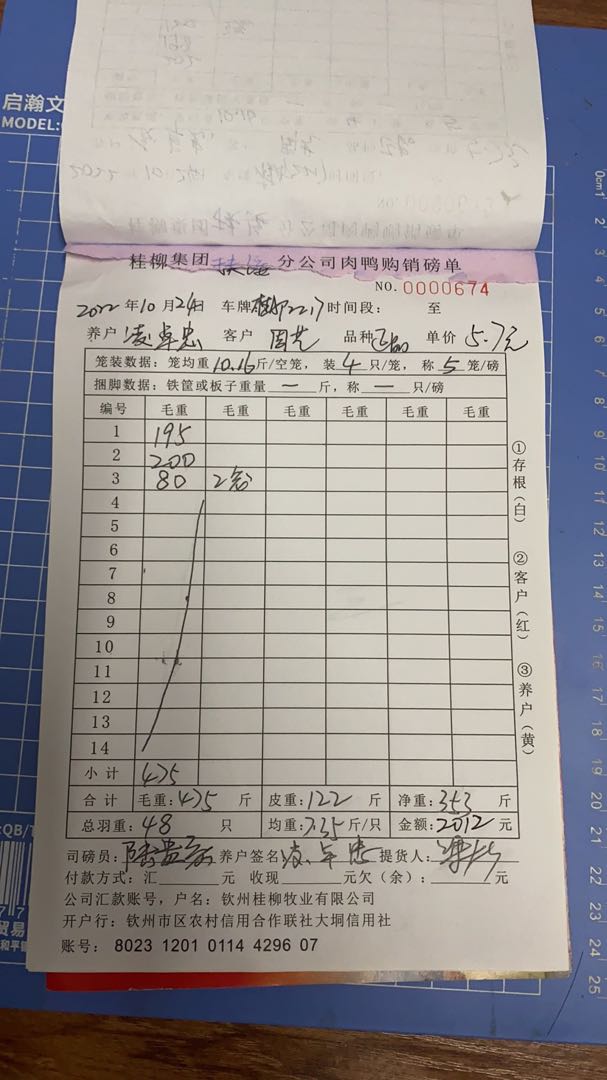 启瀚文
MODEL:
桂柳集团 扶绥 分公司肉鸭购销磅单
NO.0000674
2022年10月24日 车牌 2217 时间段: 至
养户 凌卓忠 客户 周艺 品种 正品 单价 5.7元
笼装数据:笼均重10.16斤/空笼,装4只/笼,称5笼/磅
捆脚数据:铁筐或板子重量 一 斤,称 一 只/磅
编号 毛重 毛重 毛重 毛重 毛重 毛重
1 195
2 200
3 80 2笼
4
5
6
7
8
9
10
11
12
13
14
小计 475
合计 毛重:475斤 皮重:122斤 净重:353斤
总羽重:48只 均重:7.35斤/只 金额:2012元
司磅员: 养户签名:凌卓忠 提货人:
付款方式:汇 元 收现 元欠(余): 元
公司汇款账号,户名:钦州桂柳牧业有限公司
开户行:钦州市区农村信用合作联社大垌信用社
账号:8023 1201 0114 4296 07
①存根(白)
②客户(红)
③养户(黄)
0cm1 2 3 4 5 6 7 8 9 10 11 12 13 14 15 16 17 18 19 20 21 22 23 24 25